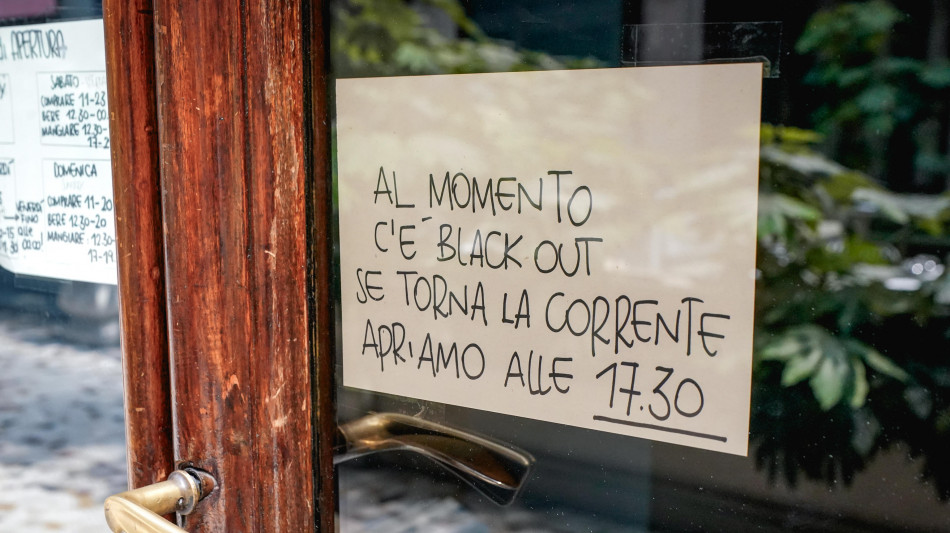 di APERTURA
SABATO
COMPRARE 11-23
BERE 12.30-00.
MANGIARE 12.30-
17-2
DOMENICA
COMPRARE 11-20
BERE 12.30-20
MANGIARE 12.30-
17-19
VENERDÌ
FINO
ALLE
00.00
AL MOMENTO
C'É BLACK OUT
SE TORNA LA CORRENTE
APRiAMO ALLE 17.30